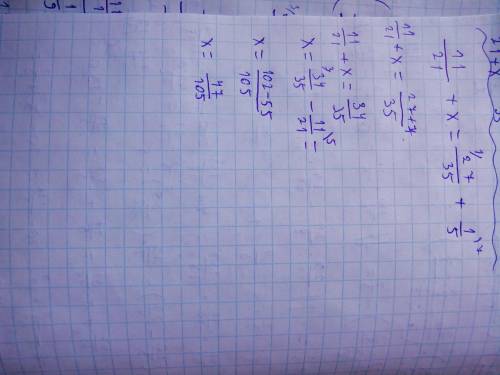 11/21 + x = 27/35 + 1/5
11/21 + x = 27+7/35
11/21 + x = 34/35
x = 34/35 - 11/21 =
x = 102-55/105
x = 47/105